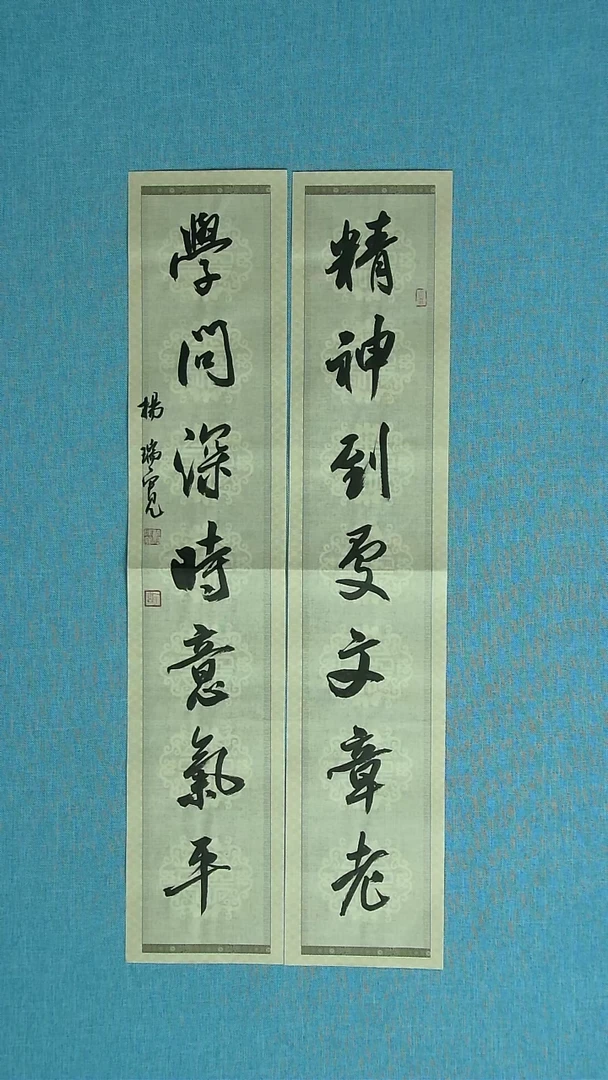 精神到處文章老
學問深時意氣平
楊瑞寬